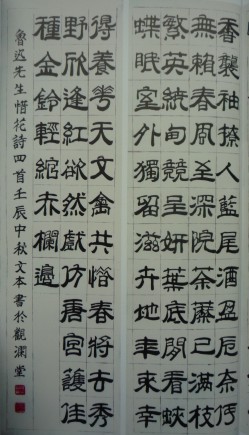 香襲袖撩人藍尾酒盈卮奈何
無賴春風至深院荼蘼已滿枝
繁英繞甸競呈妍葉底閒看蛺
蝶眠室外獨留滋卉地年來幸
得養花天文禽共惜春將去秀
野欣逢紅欲然戲仿唐宮護佳
種金鈴輕綰赤欄邊
魯迅先生惜花詩四首壬辰中秋文本書於觀瀾堂